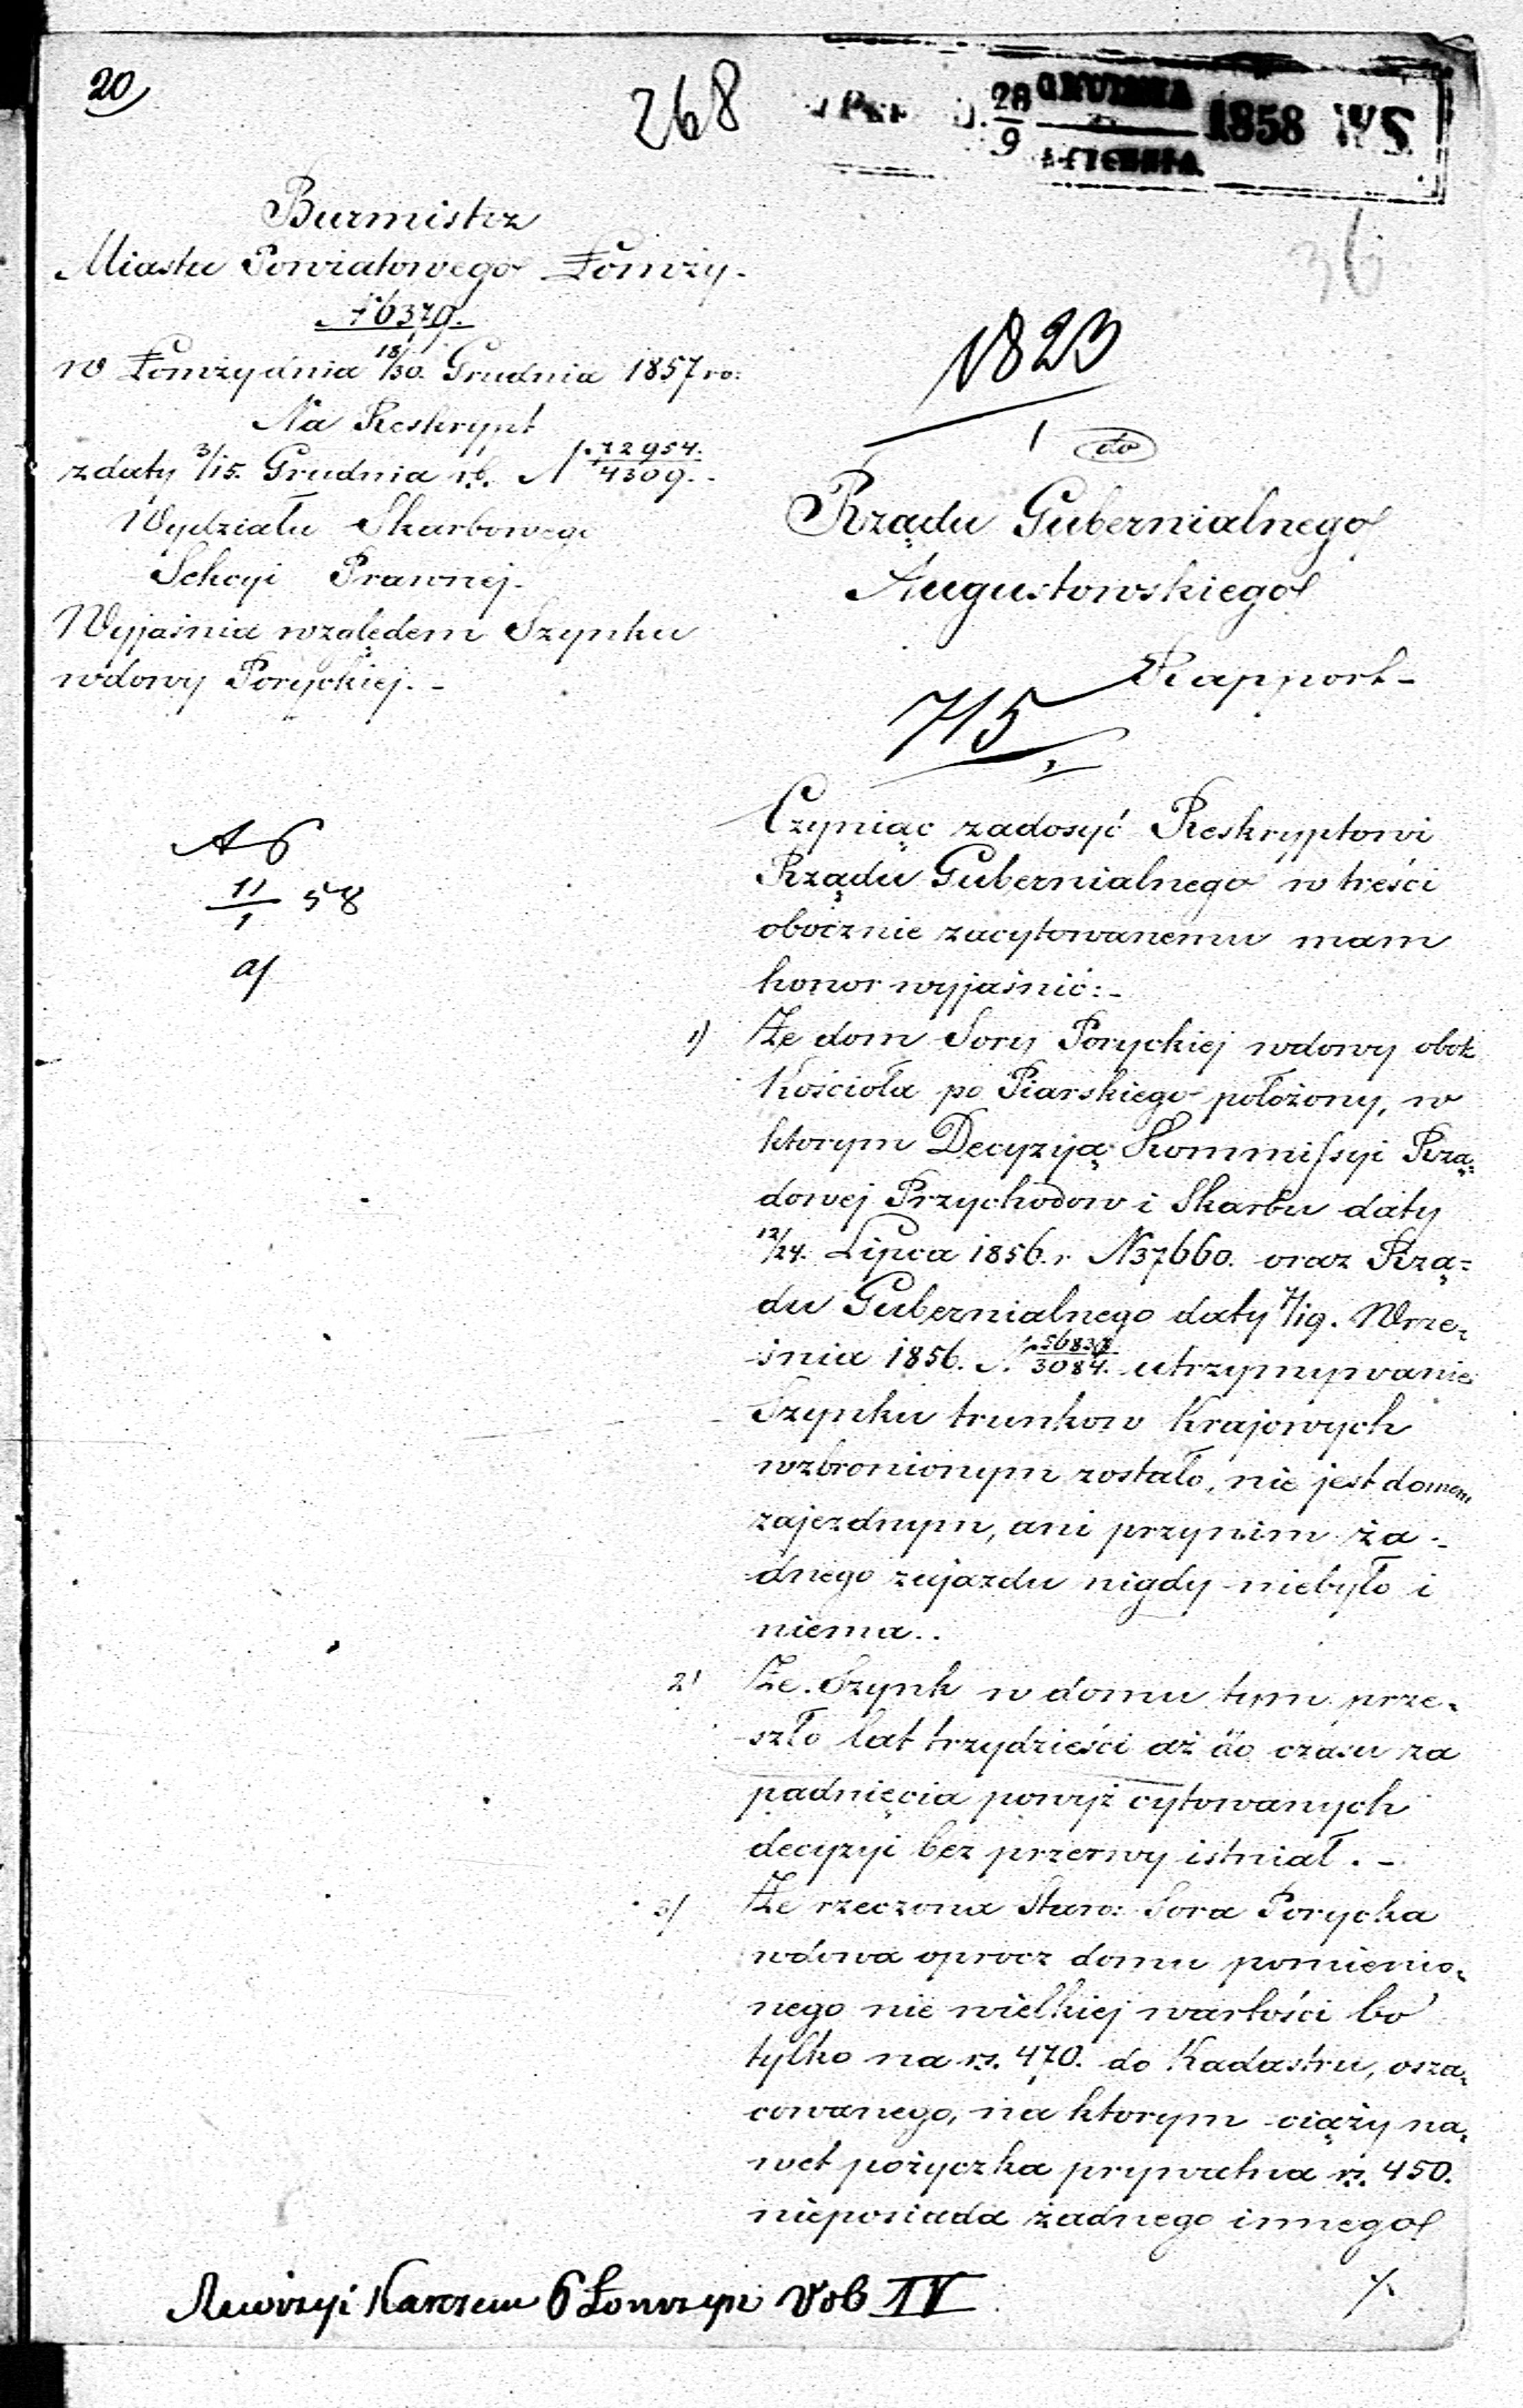 20
268
28 GRUDNIA
9 STYCZNIA
1858
36
Burmistrz
Miasta Powiatowego Łomży.
N 6379.
w Łomży dnia 18/30. Grudnia 1857 ro:
Na Reskrypt
z daty 3/15. Grudnia r.b. N 72954./4309.
Wydziału Skarbowego
Sekcyi Prawnej.
Wyjaśnia względem Szynku
wdowy Poryckiej. -
11/1 58
1823
1
do
Rządu Gubernialnego
Augustowskiego
Rapport -
715
Czyniąc zadosyć Reskryptowi
Rządu Gubernialnego w treści
obocznie zacytowanemu mam
honor wyjaśnić: -
1) Że dom Sory Poryckiej wdowy obok
Kościoła po Piarskiego położony, w
ktorym Decyzyją Kommissyi Rzą=
dowej Przychodow i Skarbu daty
12/24. Lipca 1856. r N 37660. oraz Rzą=
du Gubernialnego daty 7/19. Wrze=
śnia 1856. N. 56838/3084. utrzymywanie
Szynku trunkow Krajowych
wzbronionym zostało, nie jest domem
zajezdnym, ani przy nim ża -
dnego zajazdu nigdy niebyło i
niema..
2) Że Szynk w domu tym prze=
szło lat trzydzieści aż do czasu za
padnięcia powyż cytowanych
decyzyi bez przerwy istniał. -
3) Że rzeczona Staro: Sora Porycka
wdowa oprocz domu pomienio=
nego nie wielkiej wartości bo
tylko na rs. 470. do Kadastru, osza=
cowanego, na ktorym ciąży na=
wet pożyczka prywatna rs. 450.
nieposiada żadnego innego
./.
Karczem 6 Łomżyn Vol IV